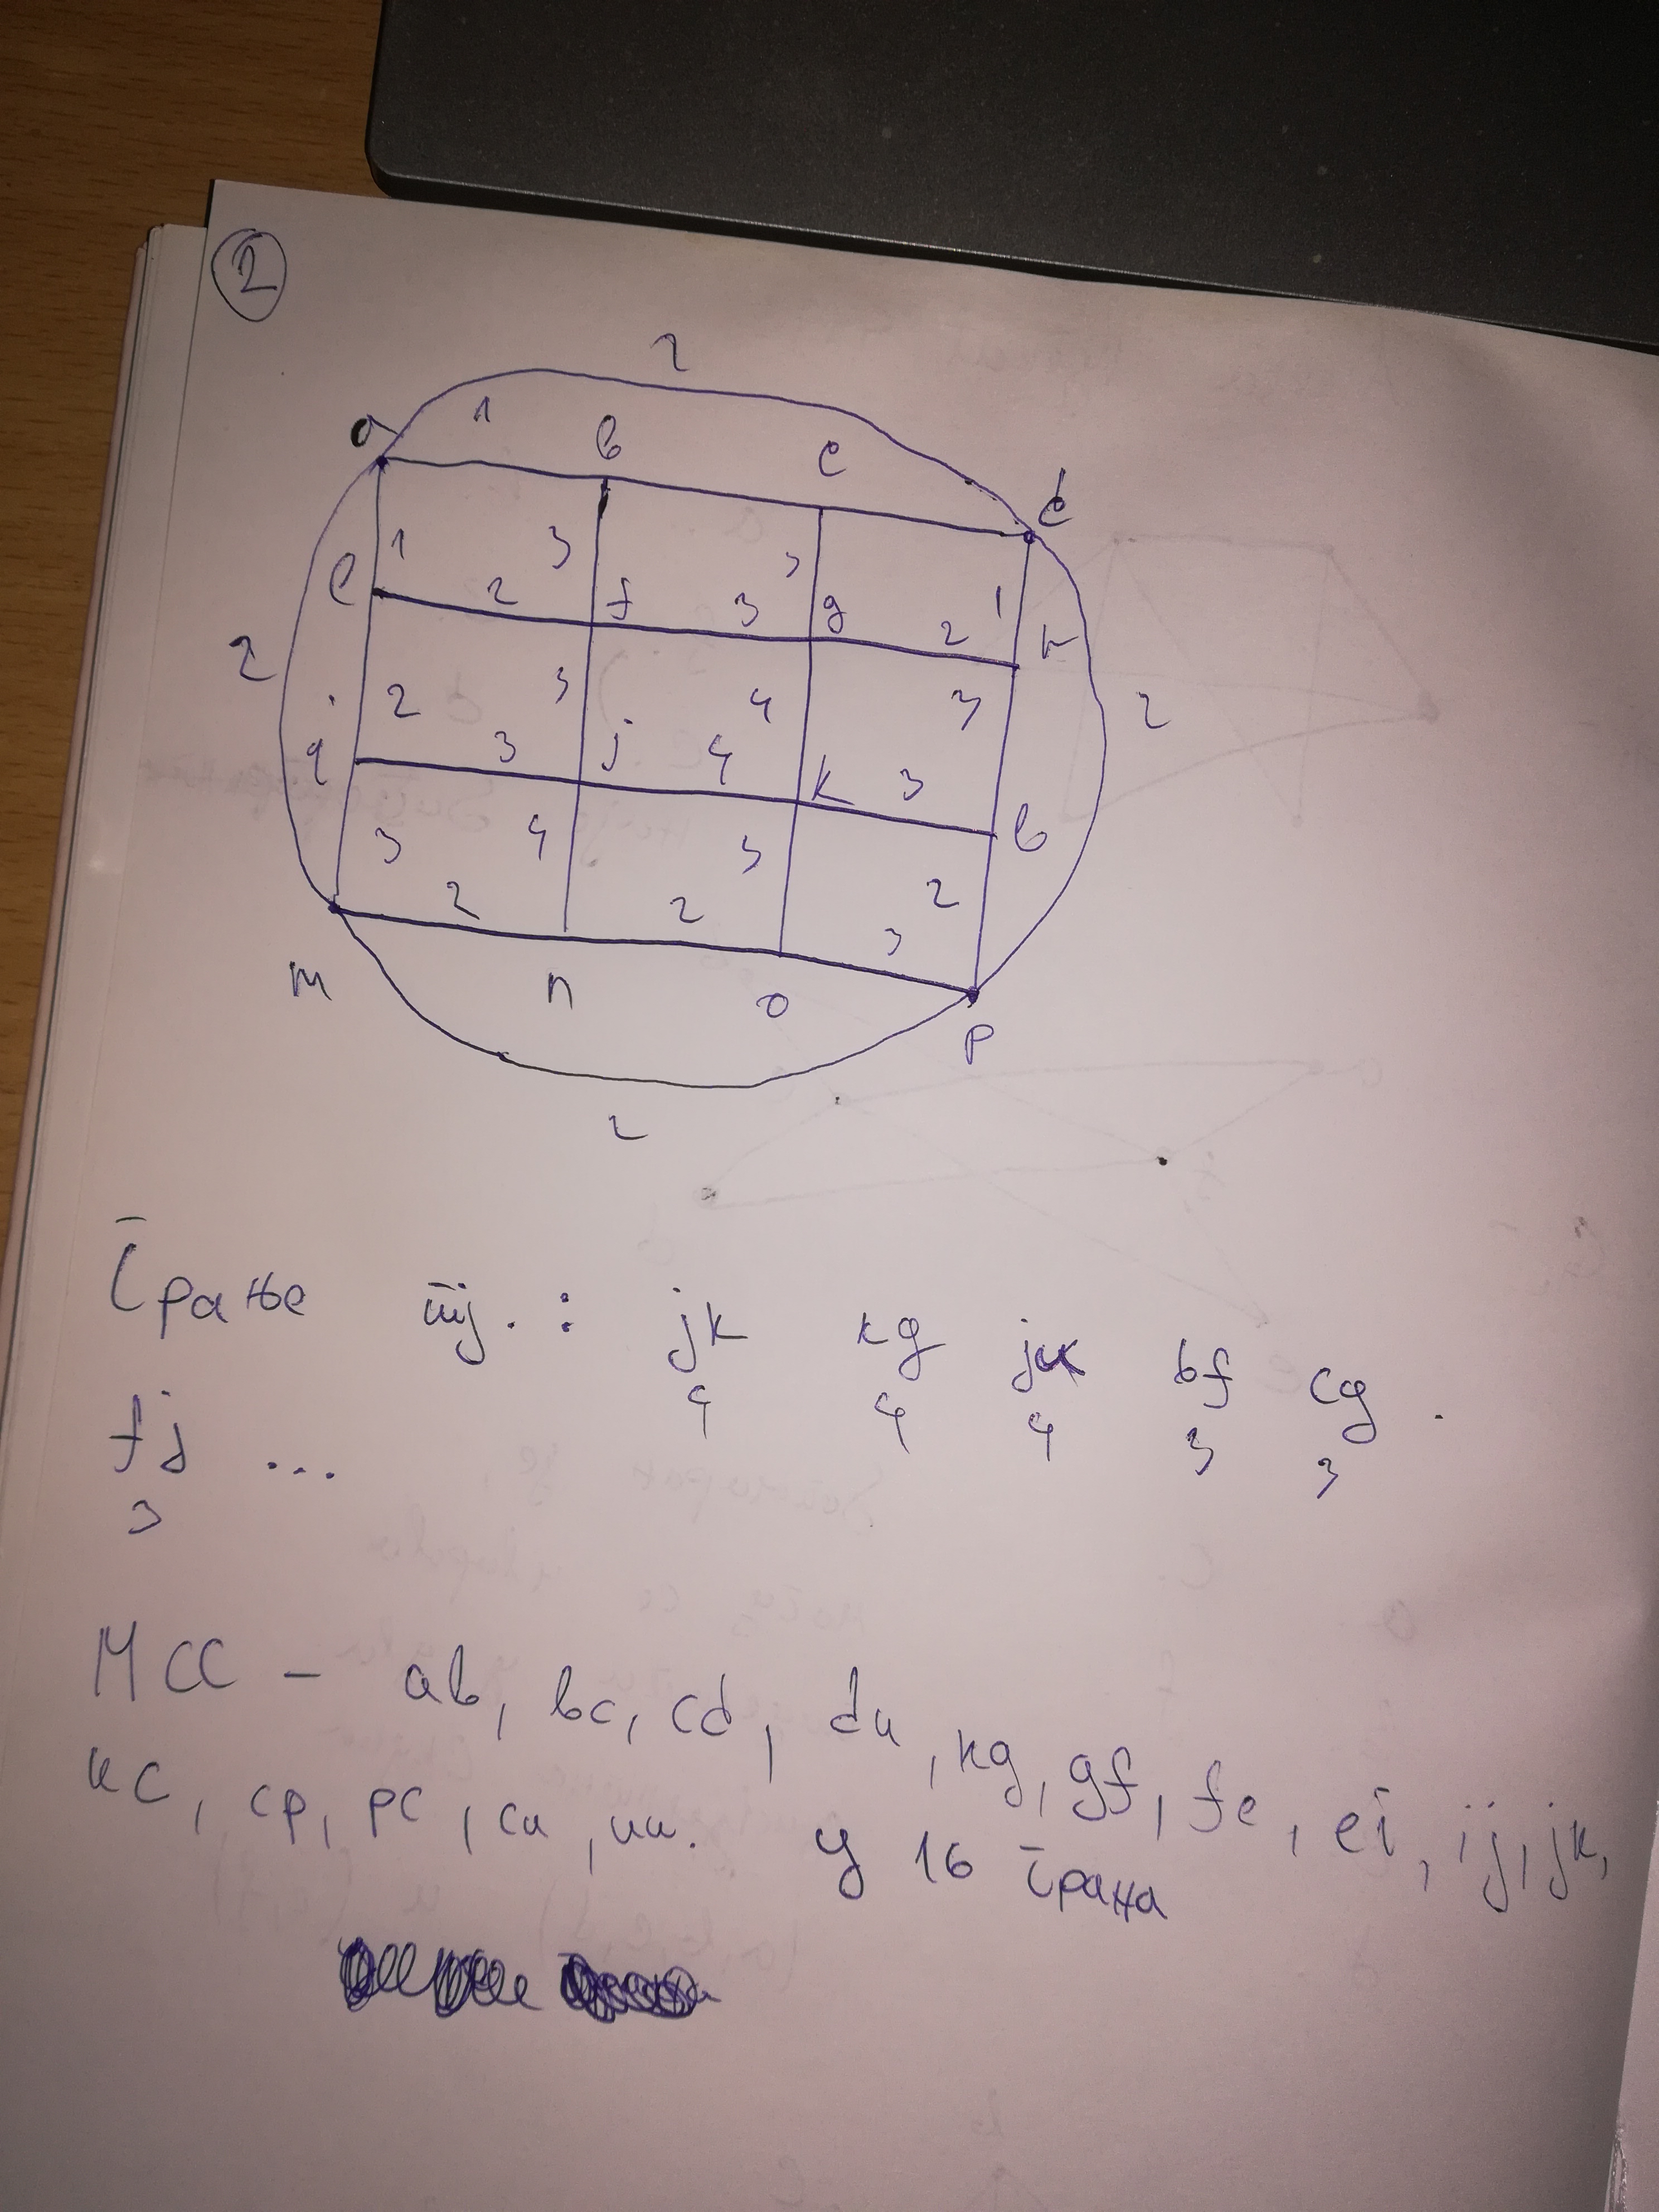 2
2
a 1 b c d
1 3 3 1
e 2 f 3 g 2 h
2 2 3 4 3 2
q 3 j 4 k 3 b
3 4 3 2
2 2 3
m n o p
2
Гране тј. : jk кg bf cg
4 4 4 3 3
fj ...
3
МСС - ab, bc, cd, du, кg, gf, fe, ei, ij, jк,
кс, cp, pc, си, ии. У 16 грана